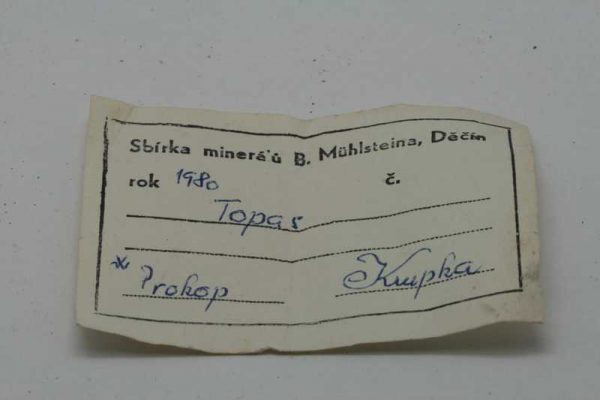 Sbírka minerálů B. Mühlsteina, Děčín
rok 1980 č.
Topas
* Prokop Krupka